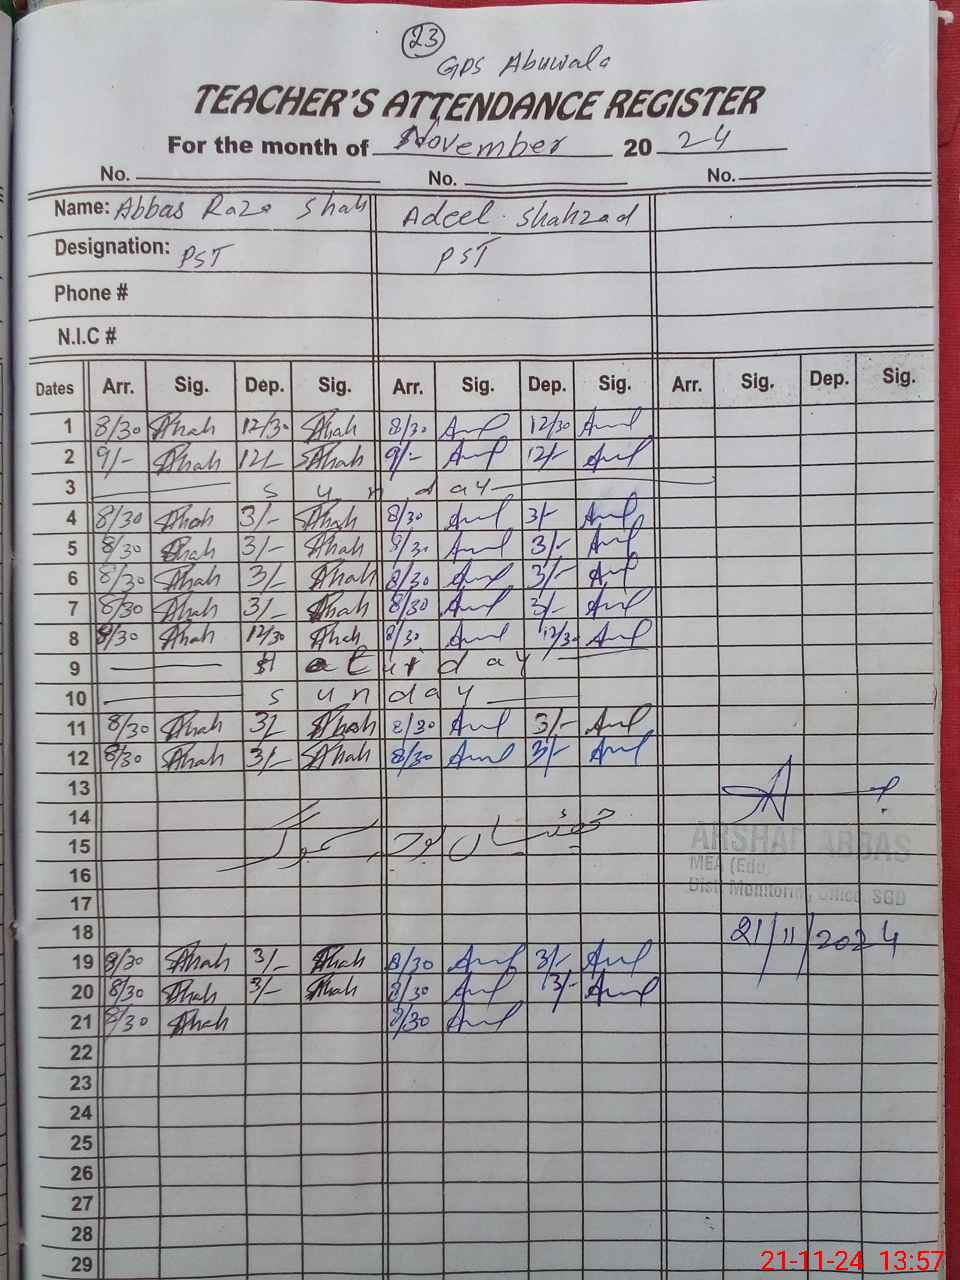 23
GPS Abuwala
TEACHER'S ATTENDANCE REGISTER
For the month of November 20 24
No. No. No.
Name: Abbas Raza Shah Adeel Shahzad
Designation: PST PST
Phone #
N.I.C #
Dates Arr. Sig. Dep. Sig. Arr. Sig. Dep. Sig. Arr. Sig. Dep. Sig.
1 8/30 Shah 12/30 Shah 8/30 12/30
2 9/- Shah 12/- Shah 9/- 12/-
3 Sunday
4 8/30 Shah 3/- Shah 8/30 3/-
5 8/30 Shah 3/- Shah 8/30 3/-
6 8/30 Shah 3/- Shah 8/30 3/-
7 8/30 Shah 3/- Shah 8/30 3/-
8 8/30 Shah 12/30 Shah 8/30 12/30
9 Saturday
10 Sunday
11 8/30 Shah 3/- Shah 8/30 3/-
12 8/30 Shah 3/- Shah 8/30 3/-
13
14
چھٹیاں بوجہ سموگ
15
ARSHAD ABBAS
16 MEA (Edu)
17 Distt Monitoring Office, SGD
18 21/11/2024
19 8/30 Shah 3/- Shah 8/30 3/-
20 8/30 Shah 3/- Shah 8/30 3/-
21 8/30 Shah 8/30
22
23
24
25
26
27
28
29
21-11-24 13:57